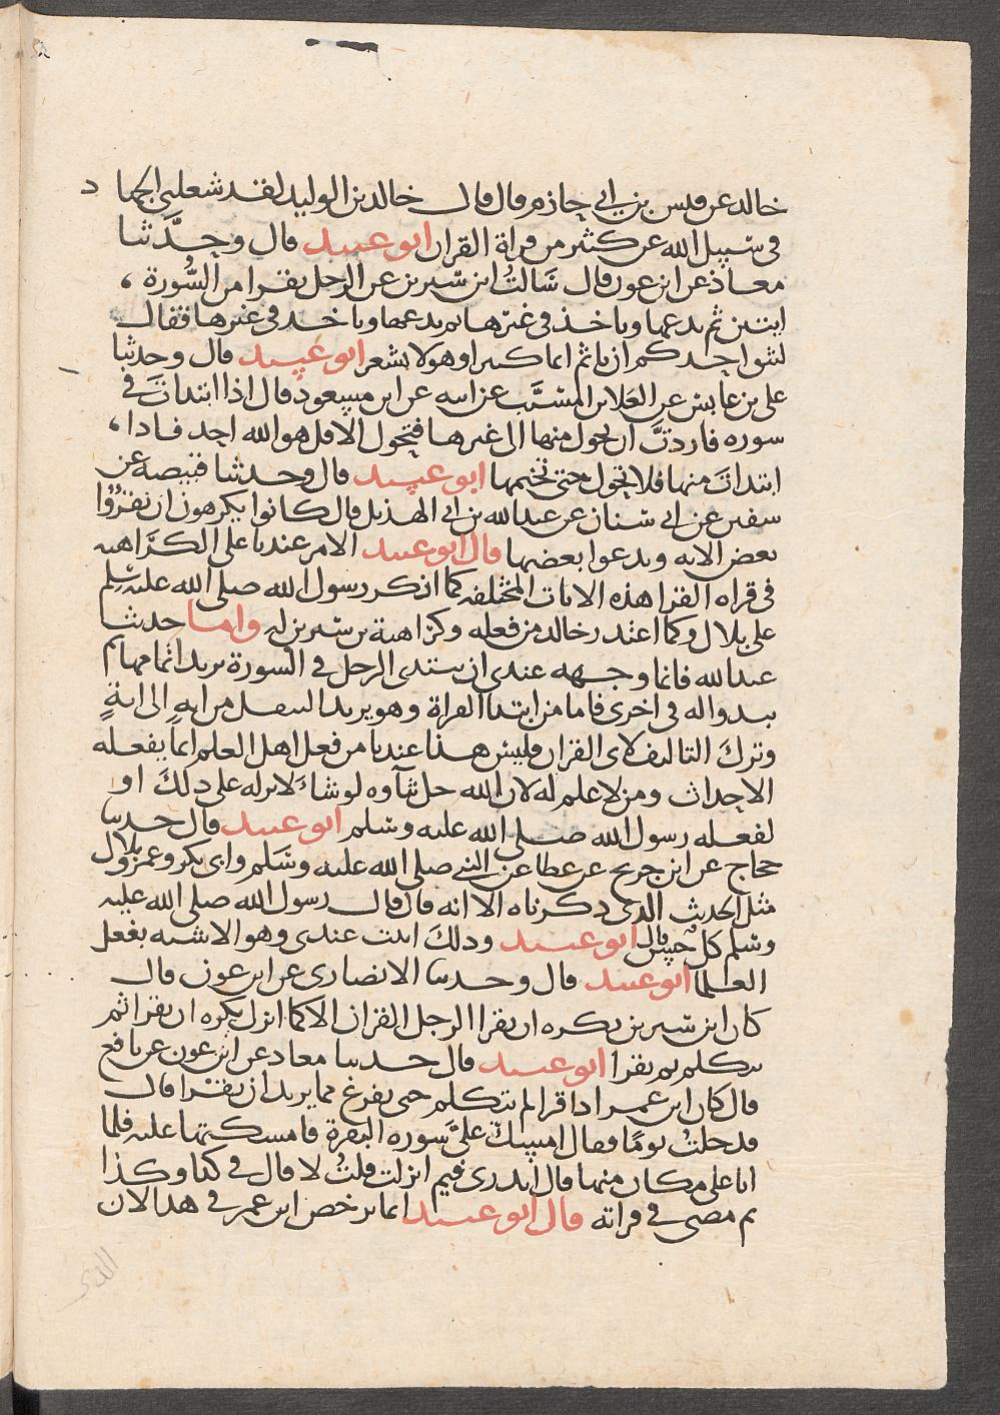 خالد عن قيس بن ابي حازم قال قال خالد بن الوليد لقد شغلني الجها د
في سبيل الله عن كثير من قراة القران ابو عبيد قال وحدثنا
معاذ عن ابن عون قال سالت ابن سيرين عن الرجل يقرا من السورة
ايتين ثم يدعها وياخذ في غيرها ثم يدعها وياخذ في غيرها فقال
ليتق احدكم ان ياثم اثما كبيرا وهو لا يشعر ابو عبيد قال وحدثنا
علي بن عابس عن العلا بن المسيب عن ابيه عن ابن مسعود قال اذا ابتدات في
سوره فاردت ان تحول منها الى غيرها فتحول الا قل هو الله احد فاذا
ابتدات منها فلا تحول حتى تختمها ابو عبيد قال وحدثنا قبيصه عن
سفين عن ابي سنان عن عبد الله بن ابي الهذيل قال كانوا يكرهون ان يقرؤا
بعض الايه ويدعوا بعضها قال ابو عبيد الامر عندنا على الكراهيه
في قراه القرا هذه الايات المختلفه كما انكر رسول الله صلى الله عليه وسلم
على بلال وكما اعتذر خالد من فعله وكراهية بن سيرين له واما حديث
عبد الله فانما وجهه عندي ان يبتدي الرجل في السورة يريد اتمامها ثم
يبدو اله في اخرى فاما من ابتدا القراة وهو يريد التنقل من اية الى اية
وترك التاليف لاي القران فليس هذا عندنا من فعل اهل العلم انما يفعله
الاحداث ومن لا علم له لان الله جل ثناوه لو شا لانزله على ذلك او
لفعله رسول الله صلى الله عليه وسلم ابو عبيد قال حدثنا
حجاج عن ابن جريج عن عطا عن النبي صلى الله عليه وسلم وابي بكر وعمر وبلال
مثل الحديث الذي ذكرناه الا انه قال قال رسول الله صلى الله عليه
وسلم كل حسن قال ابو عبيد وذلك اثبت عندي وهو الاشبه بفعل
العلما ابو عبيد قال وحدثنا الانصاري عن ابن عون قال
كان ابن سيرين يكره ان يقرا الرجل القران الا كما انزل يكره ان يقرا ثم
يتكلم ثم يقرا ابو عبيد قال حدثنا معاذ عن ابن عون عن نافع
قال كان ابن عمر اذا قرا لم يتكلم حتى يفرغ مما يريد ان يقرا قال
فدخلت يوما فقال امسك علي سوره البقرة فامسكتها عليه فلما
اتا على مكان منها قال اتدري فيم انزلت قلت لا قال في كذا وكذا
ثم مضى في قراته قال ابو عبيد انما يرخص ابن عمر في هذا لان
الذي